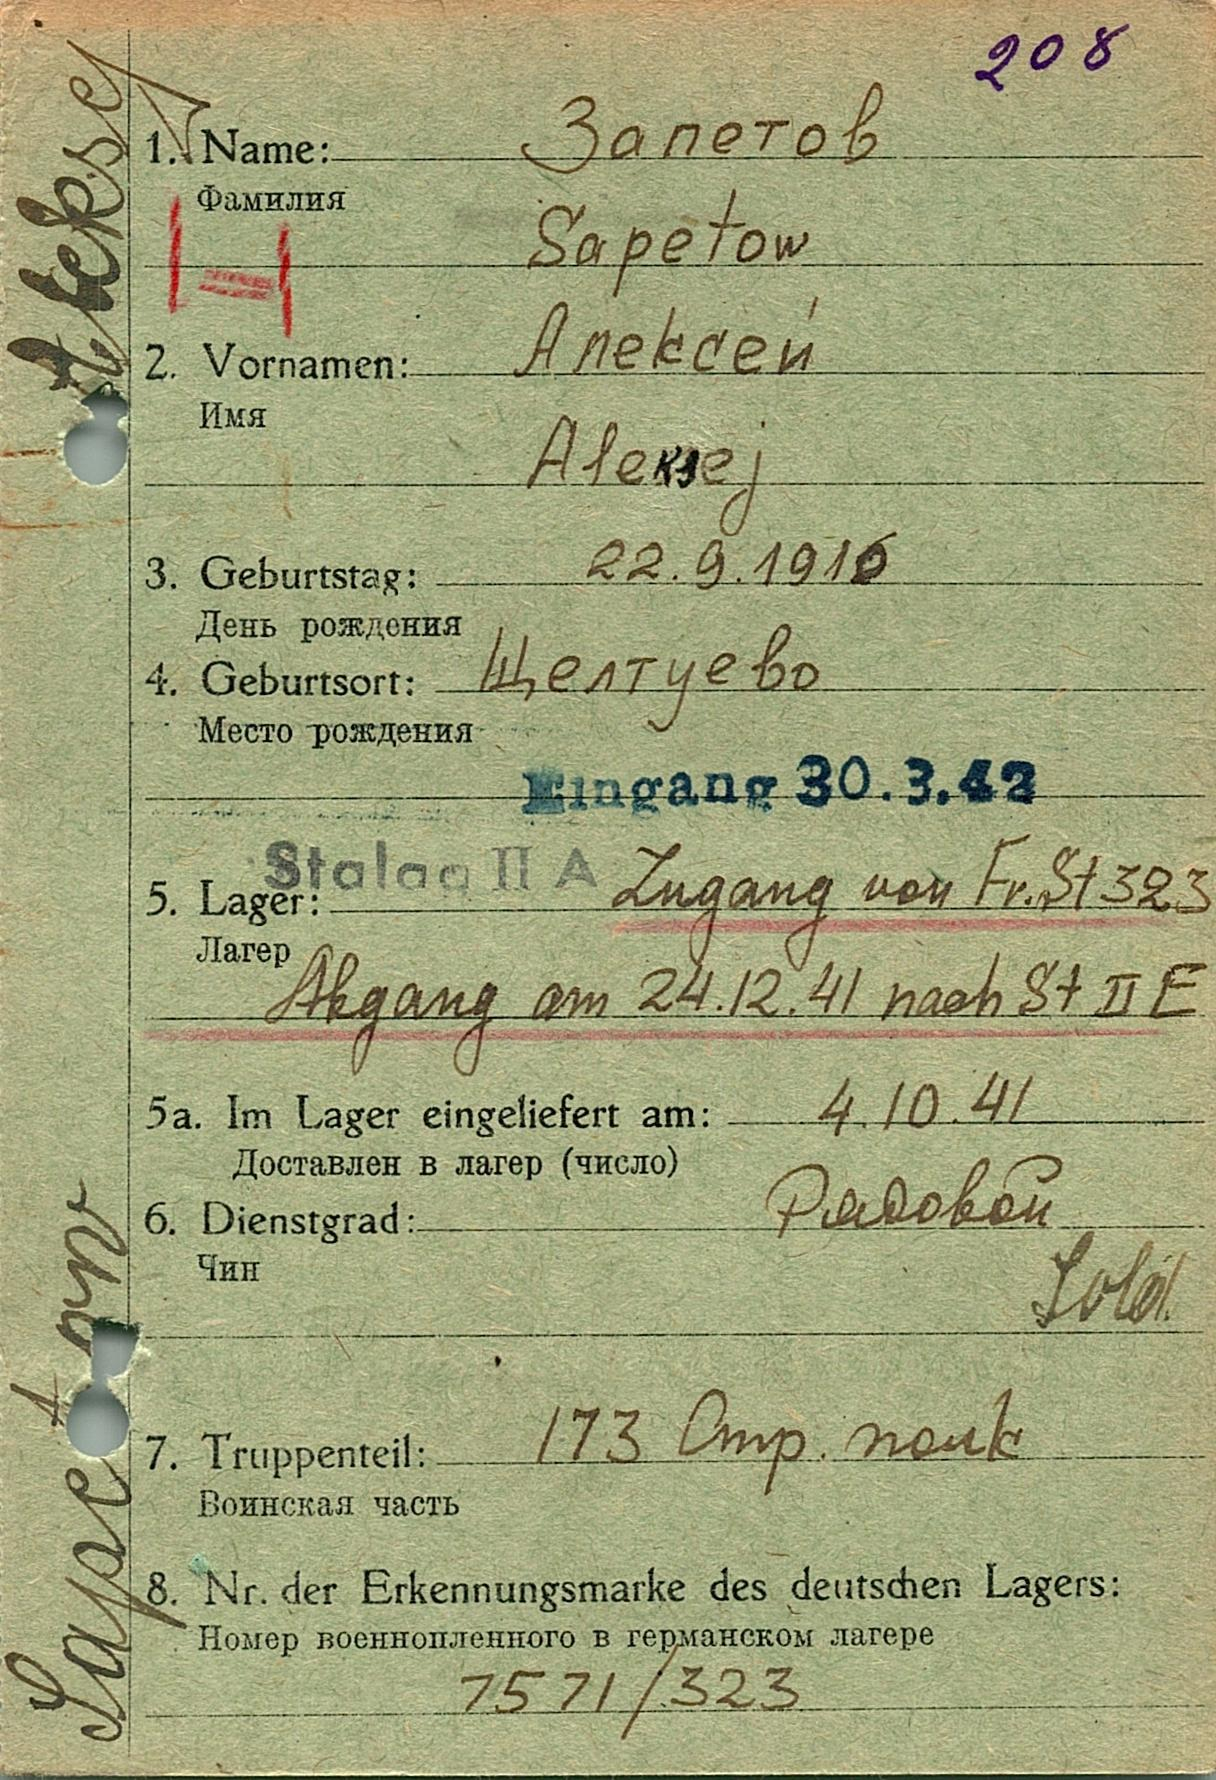 208
1. Name: Запетов
Фамилия
Sapetow
2. Vornamen: Алексей
Имя
Aleksej
3. Geburtstag: 22.9.1916
День рождения
4. Geburtsort: Щелтуево
Место рождения
Eingang 30.3.42
Stalag II A
5. Lager: Zugang von Fr. St 323
Лагер
Abgang am 24.12.41 nach St II E
5a. Im Lager eingeliefert am: 4.10.41
Доставлен в лагер (число)
6. Dienstgrad: Рядовой
Чин
Sold.
7. Truppenteil: 173 Стр. полк
Воинская часть
8. Nr. der Erkennungsmarke des deutschen Lagers:
Номер военнопленного в германском лагере
7571/323
Sapetow Aleksej